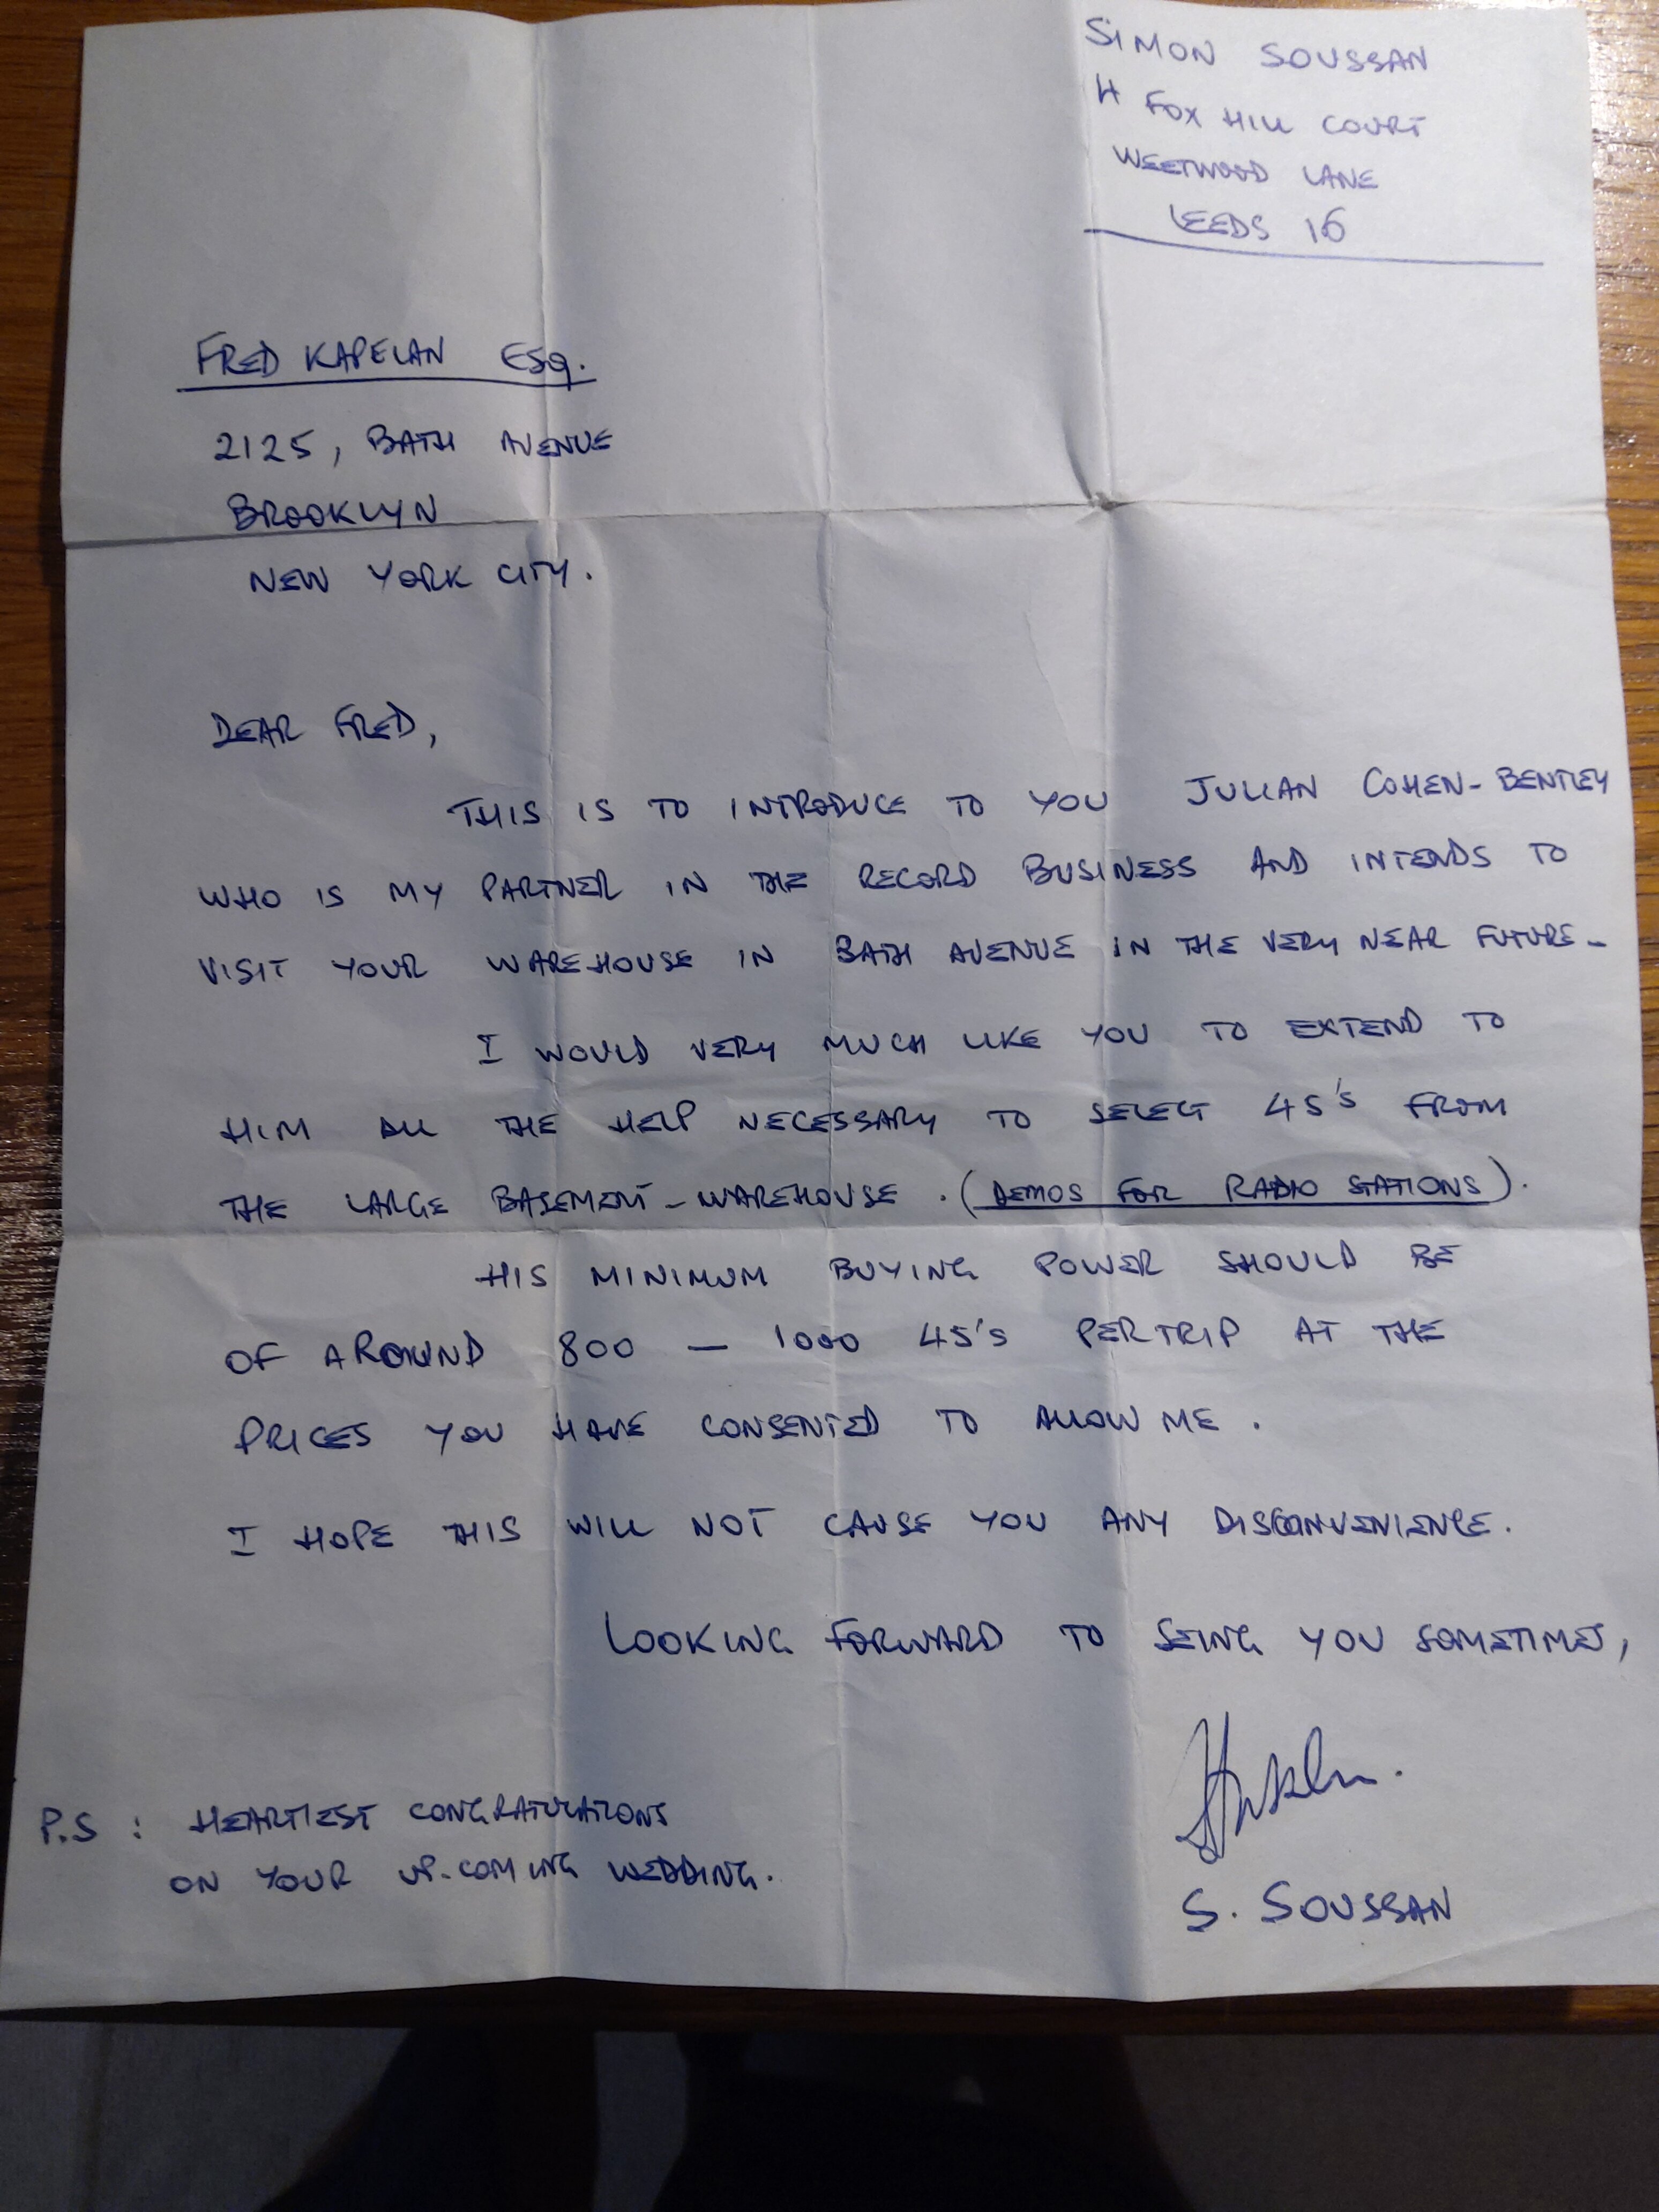 SIMON SOUSSAN
4 FOX HILL COURT
WEETWOOD LANE
LEEDS 16
FRED KAPELAN ESQ.
2125, BATH AVENUE
BROOKLYN
NEW YORK CITY.
DEAR FRED,
THIS IS TO INTRODUCE TO YOU JULIAN COHEN-BENTLEY
WHO IS MY PARTNER IN THE RECORD BUSINESS AND INTENDS TO
VISIT YOUR WAREHOUSE IN BATH AVENUE IN THE VERY NEAR FUTURE-
I WOULD VERY MUCH LIKE YOU TO EXTEND TO
HIM ALL THE HELP NECESSARY TO SELECT 45's FROM
THE LARGE BASEMENT-WAREHOUSE. (DEMOS FOR RADIO STATIONS).
HIS MINIMUM BUYING POWER SHOULD BE
OF AROUND 800 — 1000 45's PER TRIP AT THE
PRICES YOU HAVE CONSENTED TO ALLOW ME.
I HOPE THIS WILL NOT CAUSE YOU ANY DISCONVENIENCE.
LOOKING FORWARD TO SEING YOU SOMETIMES,
P.S : HEARTIEST CONGRATULATIONS
ON YOUR UP-COMING WEDDING.
S. SOUSSAN